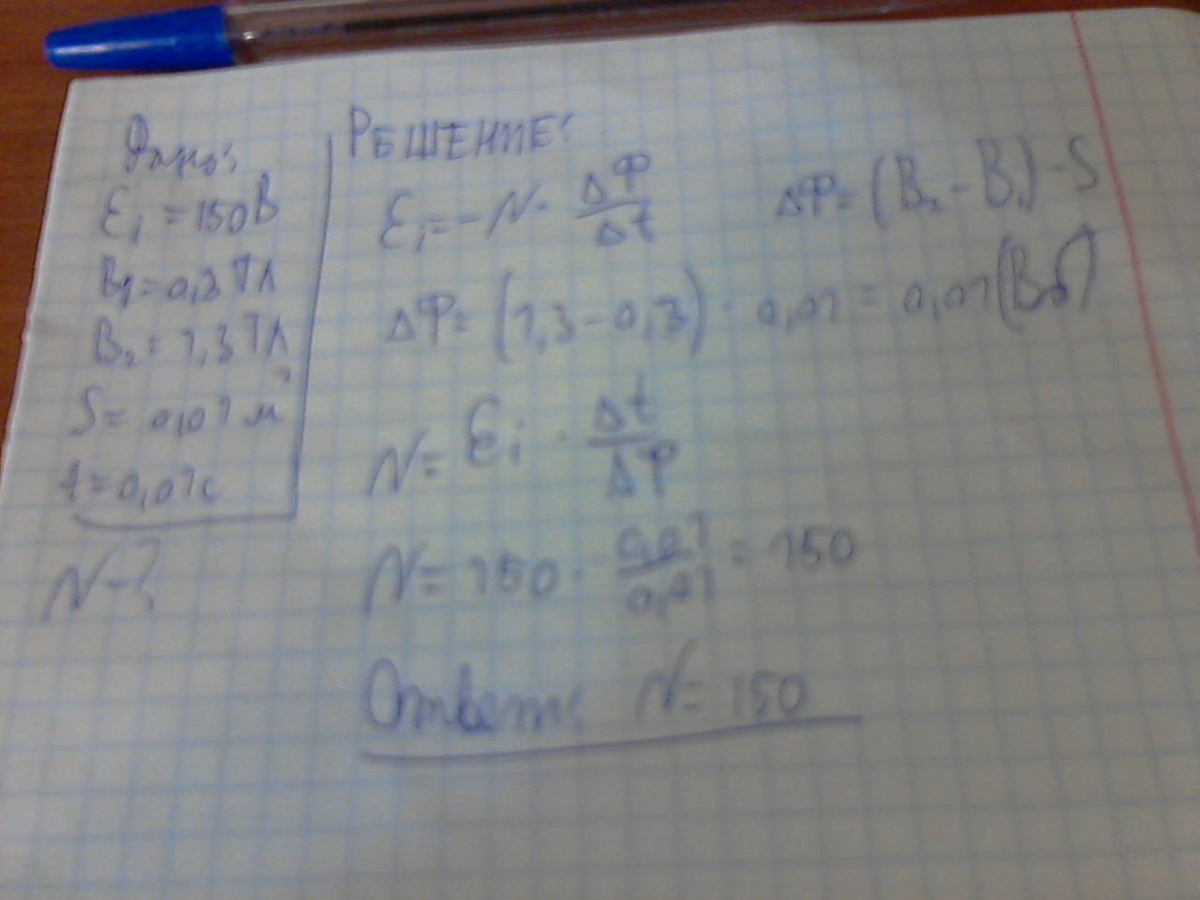 Дано:
Ɛi = 150В
B1 = 0,3 Тл
B₂ = 1,3 Тл
S = 0,01 м²
t = 0,01 с
N - ?
РЕШЕНИЕ:
Ɛi = - N · ΔΦ/Δt ΔΦ = (B₂ - B₁) · S
ΔΦ = (1,3 - 0,3) · 0,01 = 0,01 (Вб)
N = Ɛi · Δt/ΔΦ
N = 150 · 0,01/0,01 = 150
Ответ: N = 150